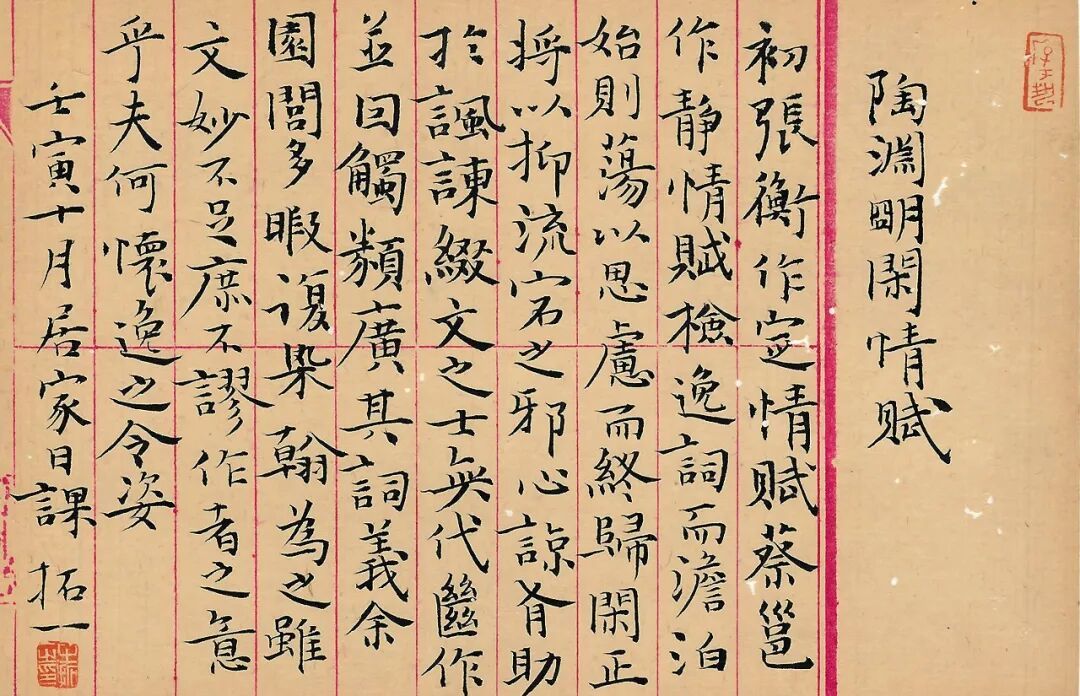 陶淵明閑情賦
初張衡作定情賦蔡邕
作静情賦檢逸詞而澹泊
始則蕩以思慮而終歸閑正
将以抑流宕之邪心諒有助
於諷諫綴文之士無代繼作
並因觸類廣其詞義余
園閭多暇復染翰為之雖
文妙不足庶不謬作者之意
乎夫何懷逸之令姿
壬寅十月居家日課 拓一